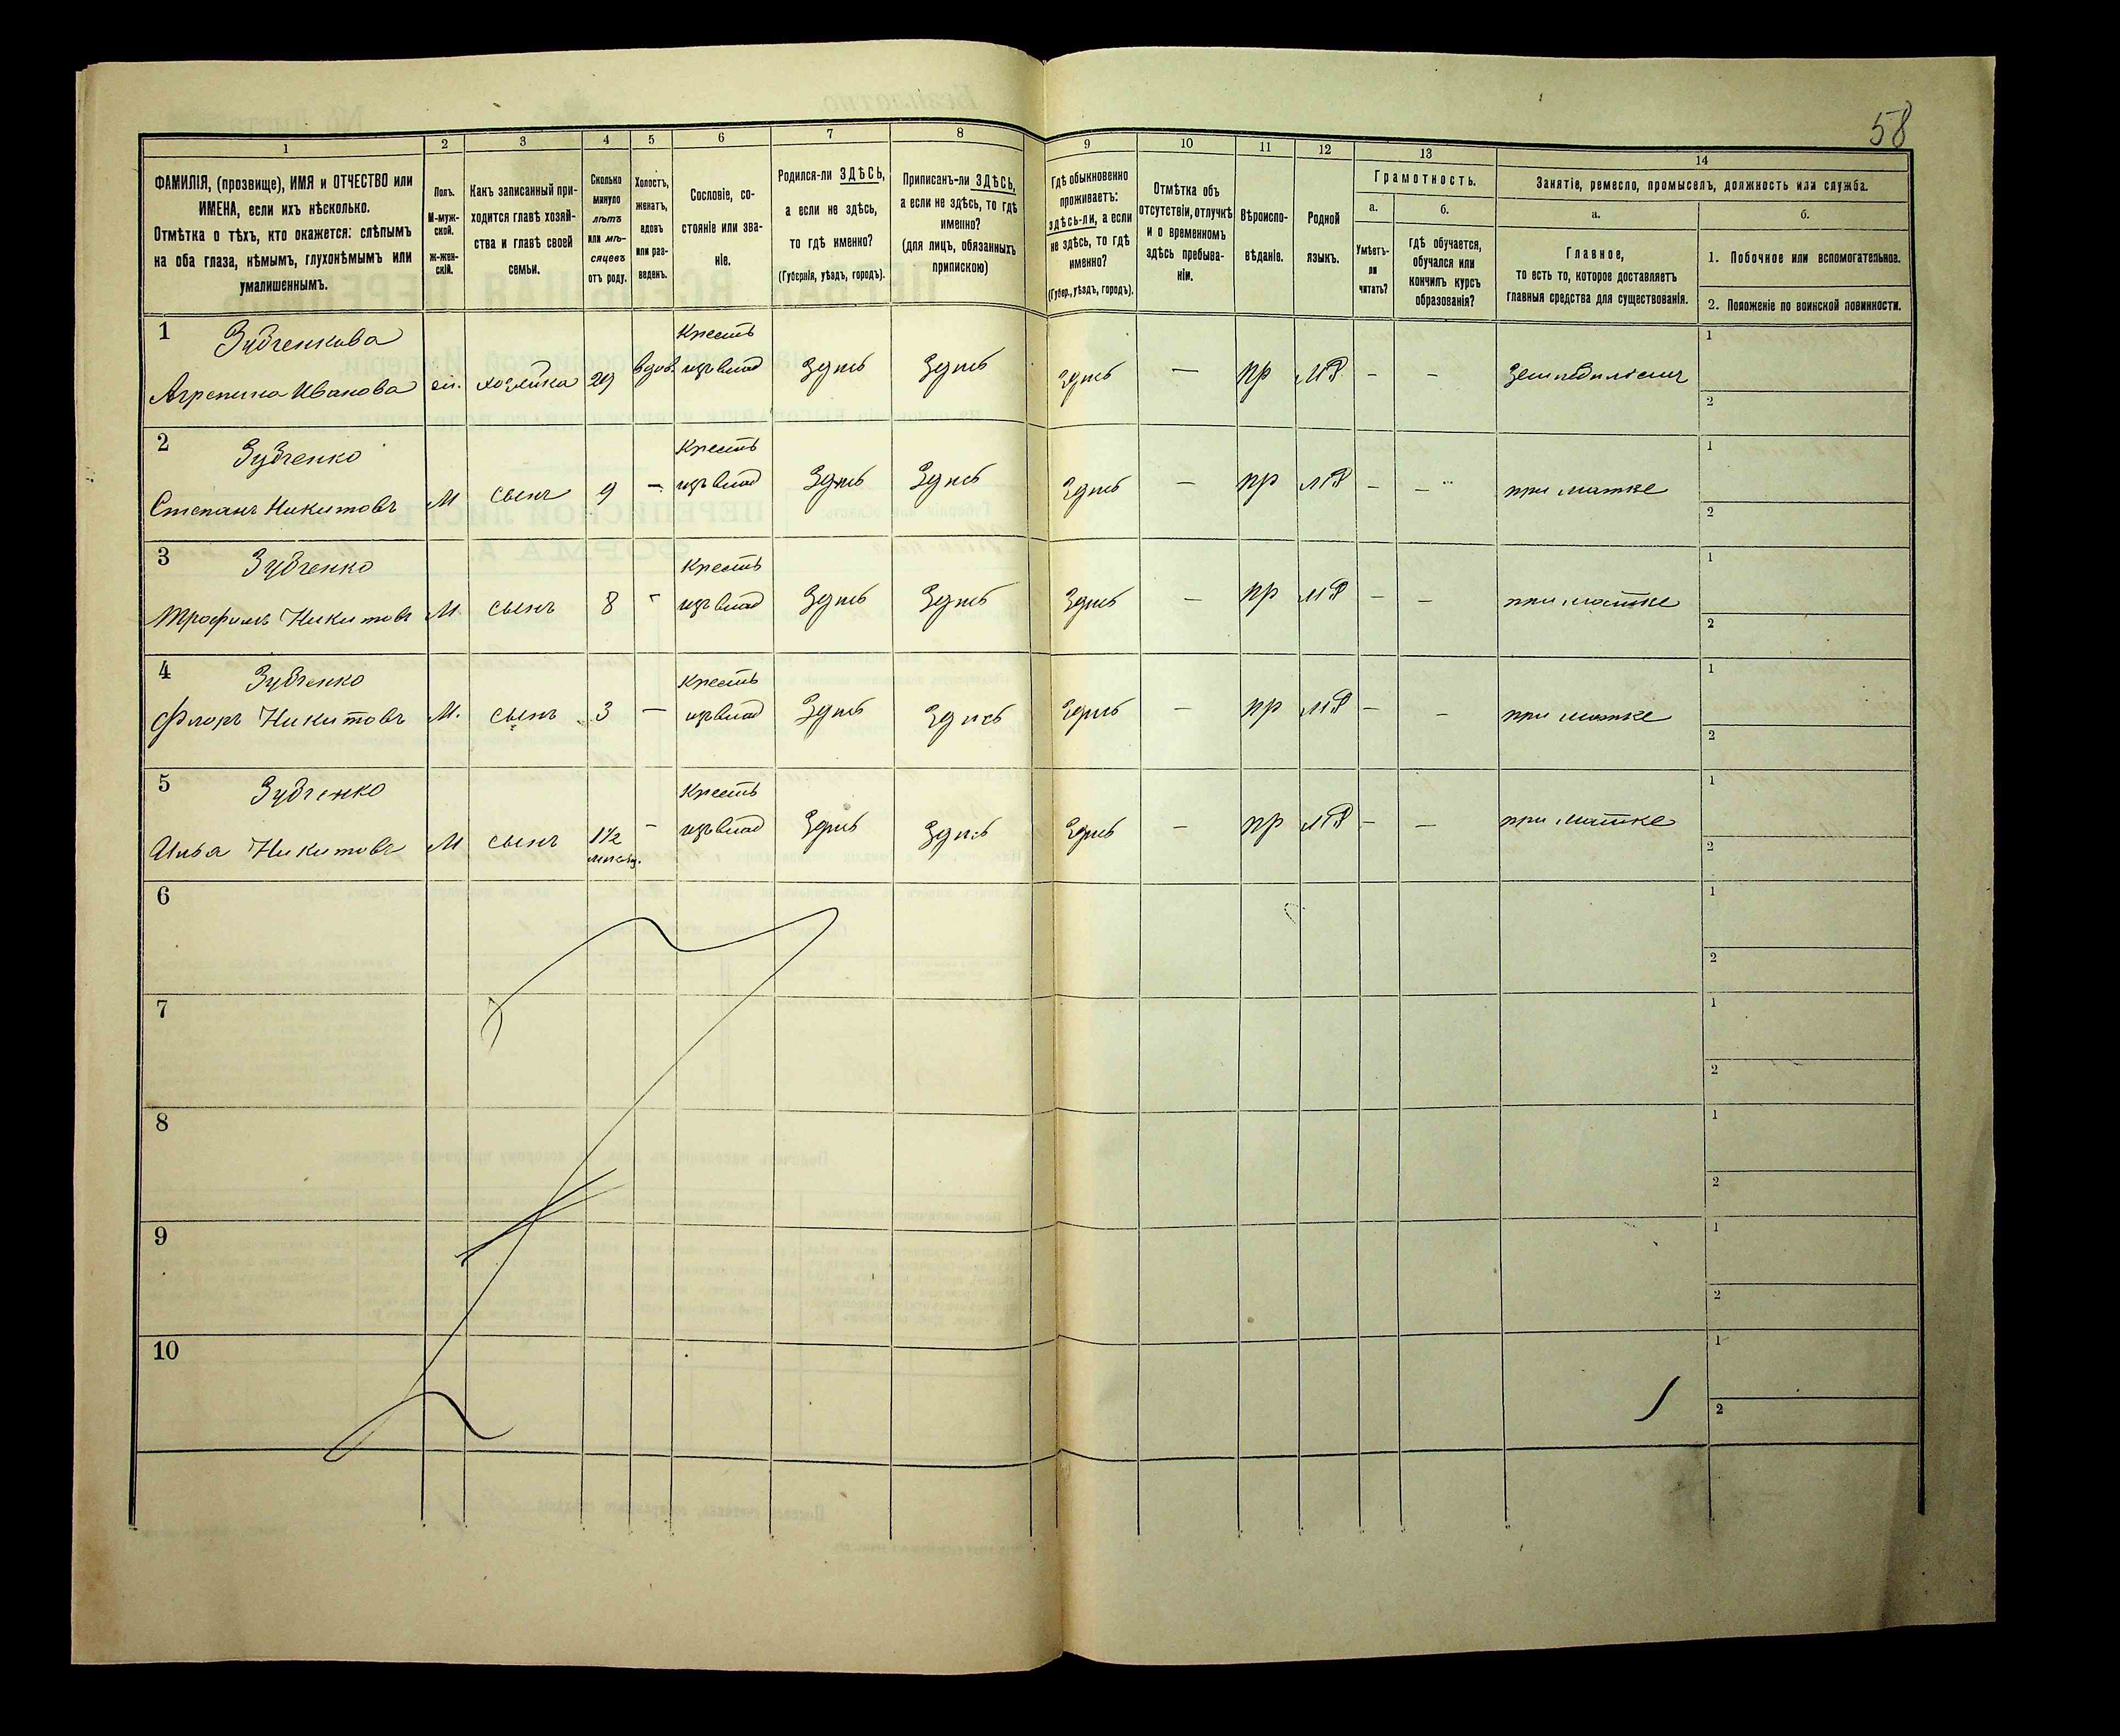 58
1
2
3
4
5
6
7
8
9
10
11
12
13
14
ФАМИЛІЯ, (прозвище), ИМЯ и ОТЧЕСТВО или
ИМЕНА, если ихъ нѣсколько.
Отмѣтка о тѣхъ, кто окажется: слѣпымъ
на оба глаза, нѣмымъ, глухонѣмымъ или
умалишеннымъ.
Полъ.
М-муж-
ской.
Ж-жен-
скій.
Какъ записанный при-
ходится главѣ хозяй-
ства и главѣ своей
семьи.
Сколько
минуло
лѣтъ
или мѣ-
сяцевъ
отъ роду.
Холостъ,
женатъ,
вдовъ
или раз-
веденъ.
Сословіе, со-
стояніе или зва-
ніе.
Родился-ли ЗДѢСЬ,
а если не здѣсь,
то гдѣ именно?
(Губернія, уѣздъ, городъ).
Приписанъ-ли ЗДѢСЬ,
а если не здѣсь, то гдѣ
именно?
(для лицъ, обязанныхъ
припискою)
Гдѣ обыкновенно
проживаетъ:
здѣсь-ли, а если
не здѣсь, то гдѣ
именно?
(Губер., уѣздъ, городъ).
Отмѣтка объ
отсутствіи, отлучкѣ
и о временномъ
здѣсь пребыва-
ніи.
Вѣроиспо-
вѣданіе.
Родной
языкъ.
Грамотность.
а.
Умѣетъ-
ли
читать?
б.
гдѣ обучается,
обучался или
кончилъ курсъ
образованія?
Занятіе, ремесло, промыселъ, должность или служба.
а.
Главное,
то есть то, которое доставляетъ
главныя средства для существованія.
б.
1. Побочное или вспомогательное.
2. Положеніе по воинской повинности.
1 Зубченкова
Агрепина Иванова
хозяйка 29 вдов. Крестъ
Здѣсь Здѣсь Здѣсь — пр МР — —
1
2
2 Зубченко
Степанъ Никитовъ М сынъ 9 — Крестъ
Здѣсь Здѣсь Здѣсь — пр МР — — при матке
1
2
3 Зубченко
Трофимъ Никитовъ М. сынъ 8 - Крестъ
Здѣсь Здѣсь Здѣсь — пр МР — — при матке
1
2
4 Зубченко
Флоръ Никитовъ М. сынъ 3 — Крестъ
Здѣсь Здѣсь Здѣсь — пр МР — — при матке
1
2
5 Зубченко
Илья Никитовъ М сынъ 1½ — Крестъ
Здѣсь Здѣсь Здѣсь — пр МР — — при матке
1
2
6
1
2
7
1
2
8
1
2
9
1
2
10
1
2